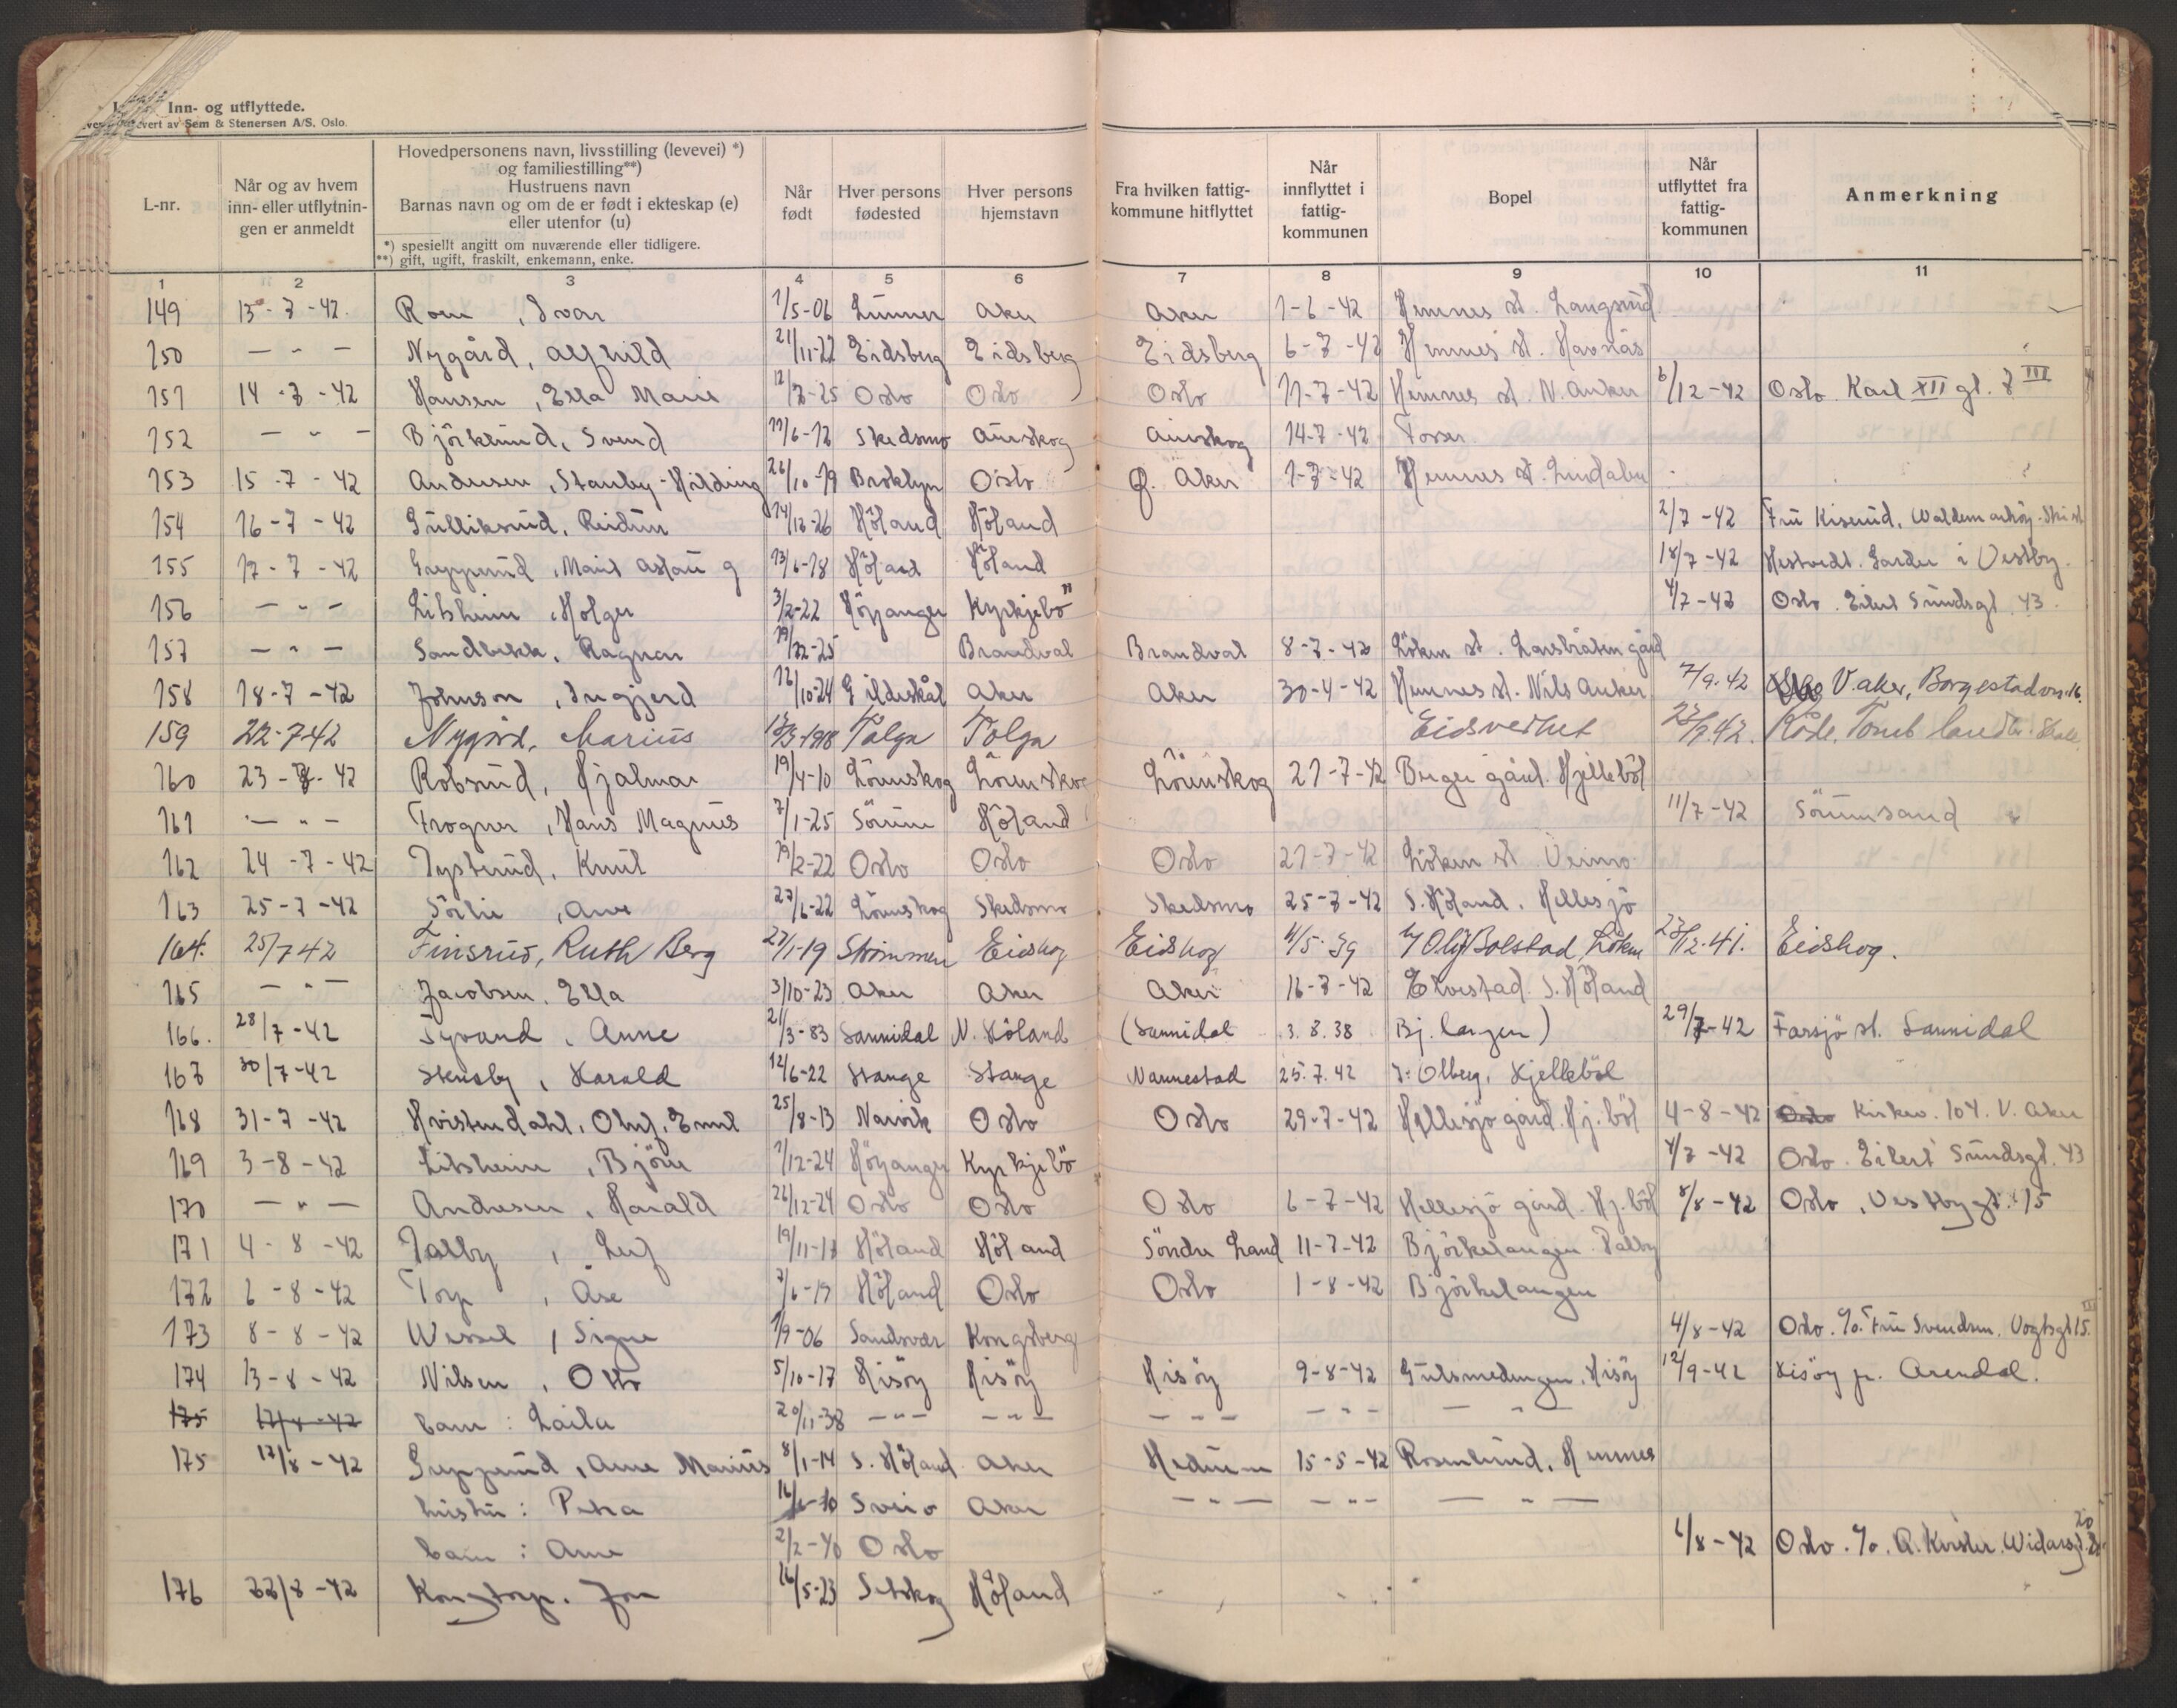 Inn- og utflyttede.
Sem & Stenersen A/S, Oslo.
L-nr.
Når og av hvem inn- eller utflytnin-gen er anmeldt
Hovedpersonens navn, livsstilling (levevei) *) og familiestilling**)
Hustruens navn
Barnas navn og om de er født i ekteskap (e) eller utenfor (u)
*) spesiellt angitt om nuværende eller tidligere.
**) gift, ugift, fraskilt, enkemann, enke.
Når født
Hver persons fødested
Hver persons hjemstavn
Fra hvilken fattig-kommune hitflyttet
Når innflyttet i fattig-kommunen
Bopel
Når utflyttet fra fattig-kommunen
Anmerkning
1 2 3 4 5 6 7 8 9 10 11
149 13-7-42. Roen, Ivar 1/5-06 Lunner Aker Aker 1-6-42 Hemnes st. Langsrud
150 — " — Nygård, Alfhild 21/11-22 Eidsberg Eidsberg Eidsberg 6-7-42 Hemnes st. Havnås
151 14-7-42 Hansen, Ella Marie 12/7-25 Oslo Oslo Oslo 11-7-42 Hemnes st. N. Anker 6/12-42 Oslo. Karl XII gt. 7 III
152 — " — Björklund, Svend 11/6-12 Skedsmo Aurskog Aurskog 14-7-42 Fosser
153 15-7-42 Andersen, Stanby-Hilding 26/10-19 Broklyn Oslo Ö. Aker 1-7-42 Hemnes st. Lindabu
154 16-7-42 Gulliksrud, Reidun 14/12-26 Höland Höland 2/7-42 Fru Kiserud, Waldemarhöy-Ski st
155 17-7-42 Grepprud, Marit Aslaug 13/6-18 Höland Höland 18/7-42 Hestvedt. Garder i Vestby.
156 — " — Litsheim, Holger 3/2-22 Höyanger Kyrkjebö 4/7-42 Oslo. Eilert Sundsgt. 43.
157 — " — Sandbekk, Ragnar 19/12-25 Brandval Brandval 8-7-42 Löken st. Larsbråten gård
158 18-7-42 Johnson, Ingjerd 12/10-24 Gildeskål Aker Aker 30-4-42 Hemnes st. Nils Anker 7/9.42 V. aker, Borgestadvn. 16.
159 22-7-42 Nygård, Marius 13/3-1918 Tolga Tolga Eidsverket 23/7.42. Råde, Tomb landbr. skole
160 23-7-42 Robsrud, Hjalmar 19/4-10 Lörenskog Lörenskog Lörenskog 21-7-42 Berger gård. Hjelleböl
161 — " — Frogner, Hans Magnus 7/1-25 Sörum Höland 11/7-42 Sörumsand
162 24-7-42 Tysterud, Knut 19/2-22 Oslo Oslo Oslo 21-7-42 Löken st Veimo
163 25-7-42 Sörlie, Arne 27/6-22 Lörenskog Skedsmo Skedsmo 25-7-42 S. Höland. Hellesjö
164. 25/7 42 Finsrud, Ruth Berg 27/1-19 Strömmen Eidskog Eidskog 4/5-39 Bolstad, Löken 23/12.41. Eidskog.
165 — " — Jacobsen, Ella 3/10-23 Aker Aker Aker 16-7-42 Elvestad. S. Höland
166. 28/7-42 Tyvand, Anne 21/3-83 Sannidal N. Höland (Sannidal 3.8.38 Bj. langen) 29/7-42 Farsjö st. Sannidal
167 30/7-42 Stensby, Harald 12/6-22 Stange Stange Nannestad 25.7.42 J. Olberg, Hjelleböl
168 31-7-42 Hvistendahl, Oluf, Emil 25/8-13 Narvik Oslo Oslo 29-7-42 Hellesjö gård. Hj. böl 4-8-42 Oslo Kirkev. 104. V. Aker
169 3-8-42 Litsheim, Björn 1/12-24 Höyanger Kyrkjebö 4/7-42 Oslo. Eilert Sundsgt. 43
170 — " — Andresen, Harald 26/12-24 Oslo Oslo Oslo 6-7-42 Hellesjö gård. Hj. böl 8/8-42 Oslo, Vestbygt. 15
171 4-8-42 Falby, Leif 19/11-17 Höland Höland Söndre Land 11-7-42 Björkelangen. Falby
172 6-8-42 Torp, Åse 7/6-17 Höland Oslo Oslo 1-8-42 Björkelangen
173 8-8-42 Wessel, Signe 1/9-06 Sandsvær Kongsberg 4/8-42 Oslo. %. Fru Svendsen. Vogtsgt 15. III
174 13-8-42 Nilsen, Otto 5/10-17 Hisöy Hisöy Hisöy 9-8-42 Gulsmedengen, Hisöy 12/9-42 Hisöy pr. Arendal.
175 17/8-42 barn: Laila 20/11-38 — " — — " — — " — — " — — " —
175 17/8-42 Grepprud, Arne Marius 8/1-14 S. Höland Aker Hedrum 15-5-42 Rosenlund, Hemnes
hustru: Petra 16/6-10 Svein Aker — " — — " — — " —
barn: Arne 2/2-40 Oslo 1/8-42 Oslo. %. A. Kvisler. Widarsgt. 20
176 22/8-42 Kongtorp. Jon 16/5-23 Setskog Höland